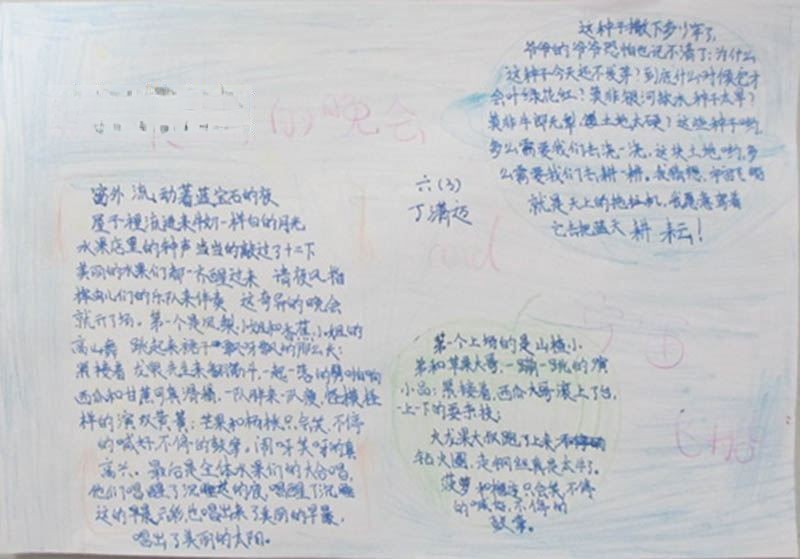 的晚会
窗外 流动着蓝宝石的夜
屋子裡流进来牛奶一样白的月光
水果店里的种声当当的敲过了十二下
美丽的水果们都一齐醒过来 请夜风指
挥虫儿们的乐队来伴奏 这奇异的晚会
就开了场。第一个是凤梨小姐和香蕉小姐的
高山舞 跳起来裙子飘呀飘的那么长;
累接着 龙眼先生来翻筋斗,一起一落的劈啪响
西瓜和甘蔗可真滑稽,一队胖来一队瘦,怪模怪
样的演双黄簧;芒果和杨桃只会笑,不停
的喊好不停的鼓掌。闹呀笑呀的真
高兴。最后是全体水果们的大合唱,
他们唱醒了沉睡着的夜,唱醒了沉睡
这的早晨云彩,也唱出来了美丽的早晨,
唱出了美丽的太阳。
六(3)
丁满迈
这种子撒下多少年了,
爷爷的爷爷恐怕也说不清了;为什么
这种子今天还不发芽?到底什么时候它才
会叶绿花红?莫非银河缺水,种子太旱?
莫非牛郎无犁,土地太硬?这些种子哟,
多么需要我们去浇一浇,这块土地哟,多
么需要我们去耕一耕。我猜想,宇宙飞船
就是天上的拖拉机,我愿意驾着
它去把蓝天 耕 耘!
第一个上场的是山楂小
弟和苹果大哥,一蹦一跳的演
小品;累接着,西瓜大哥滚上了台,
一上一下的耍杂技;
火龙果大叔跑了上来
钻火圈,走钢丝真是太牛了。
菠萝和橙子只会笑,不停
的喊好,不停的
鼓掌。
宇宙